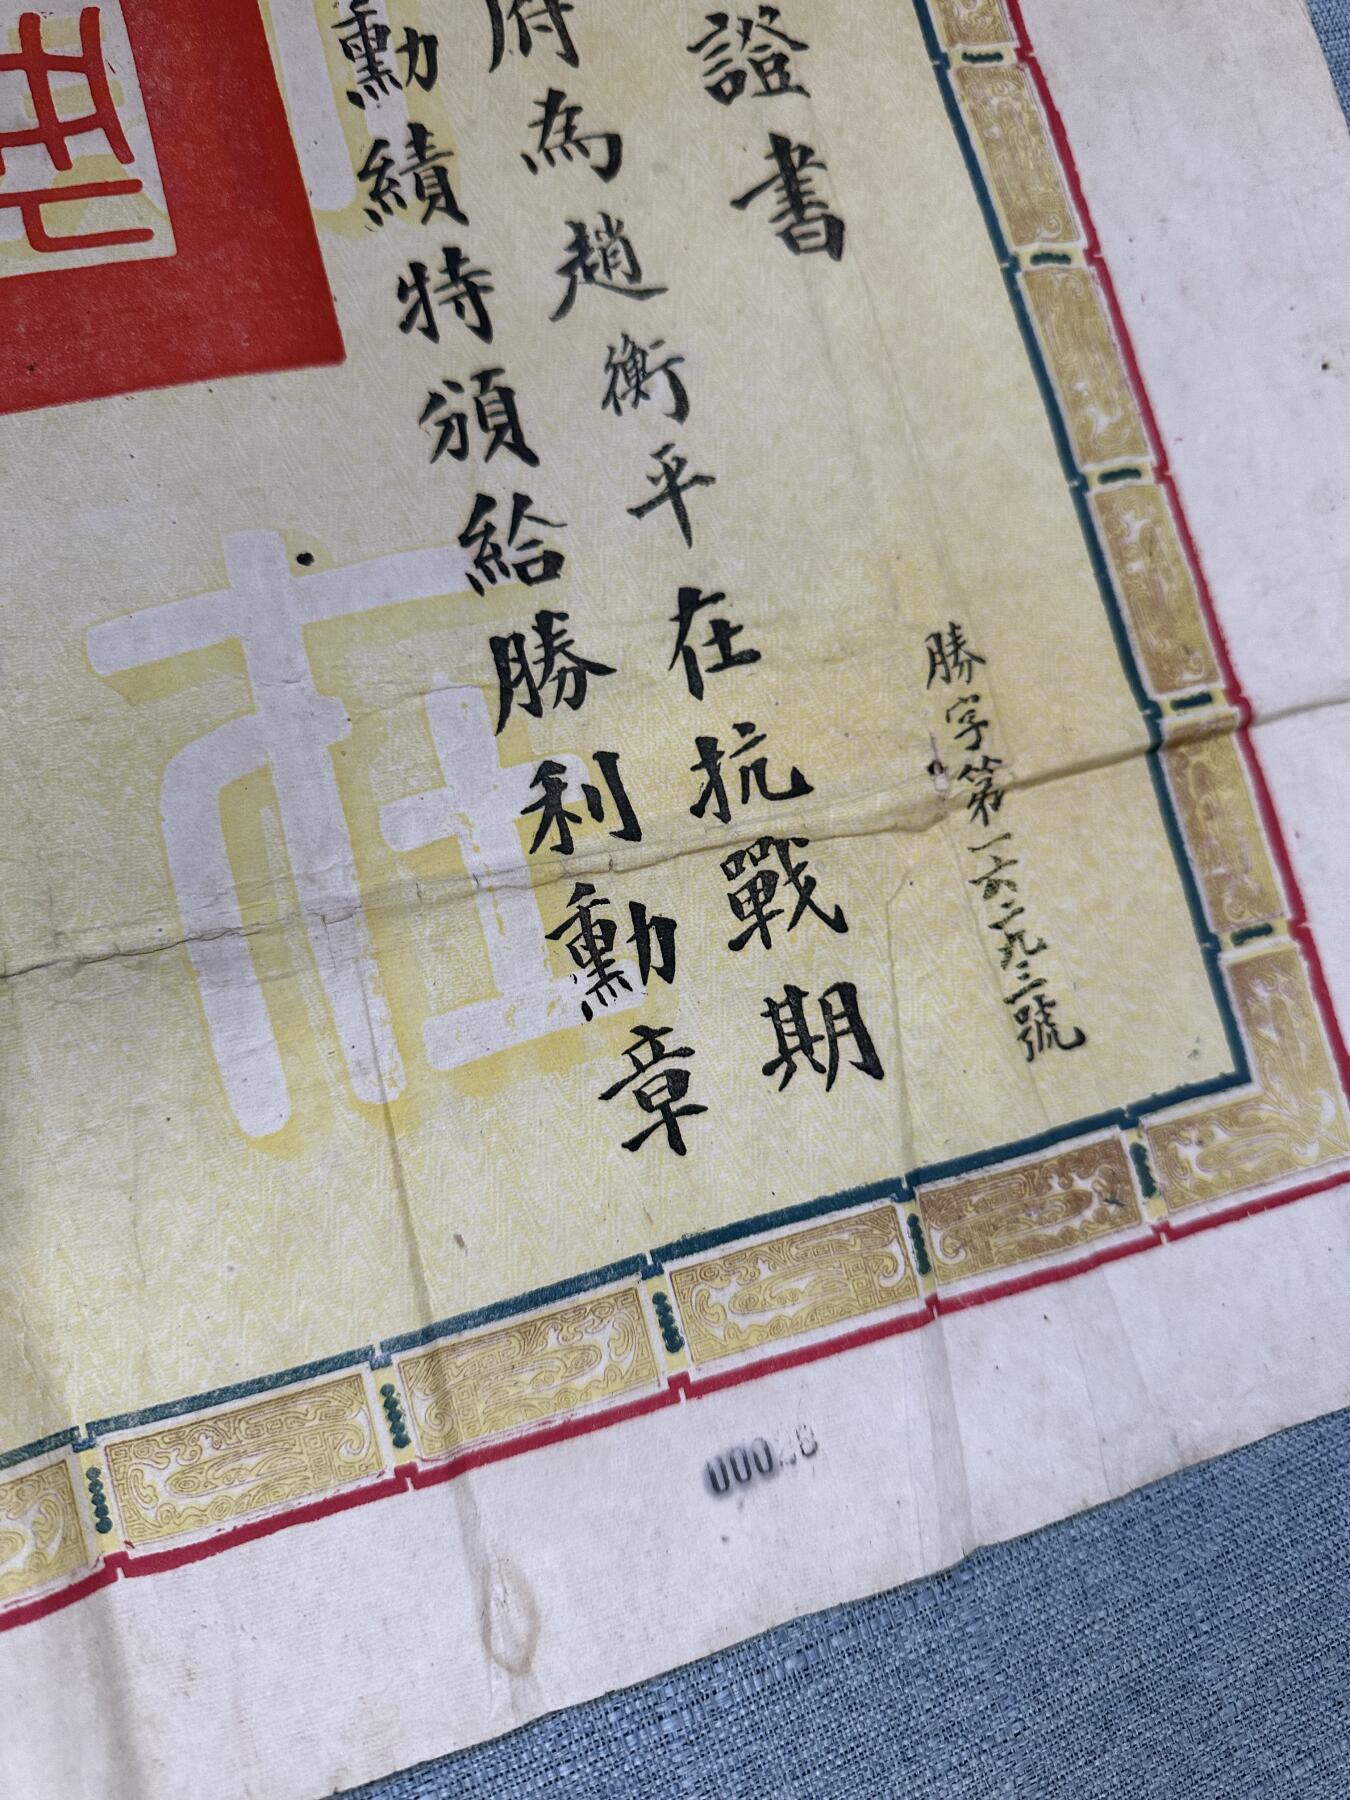 證書
勝字第一六二九三號
府為趙衡平在抗戰期
勳績特頒給勝利勳章
在
00028